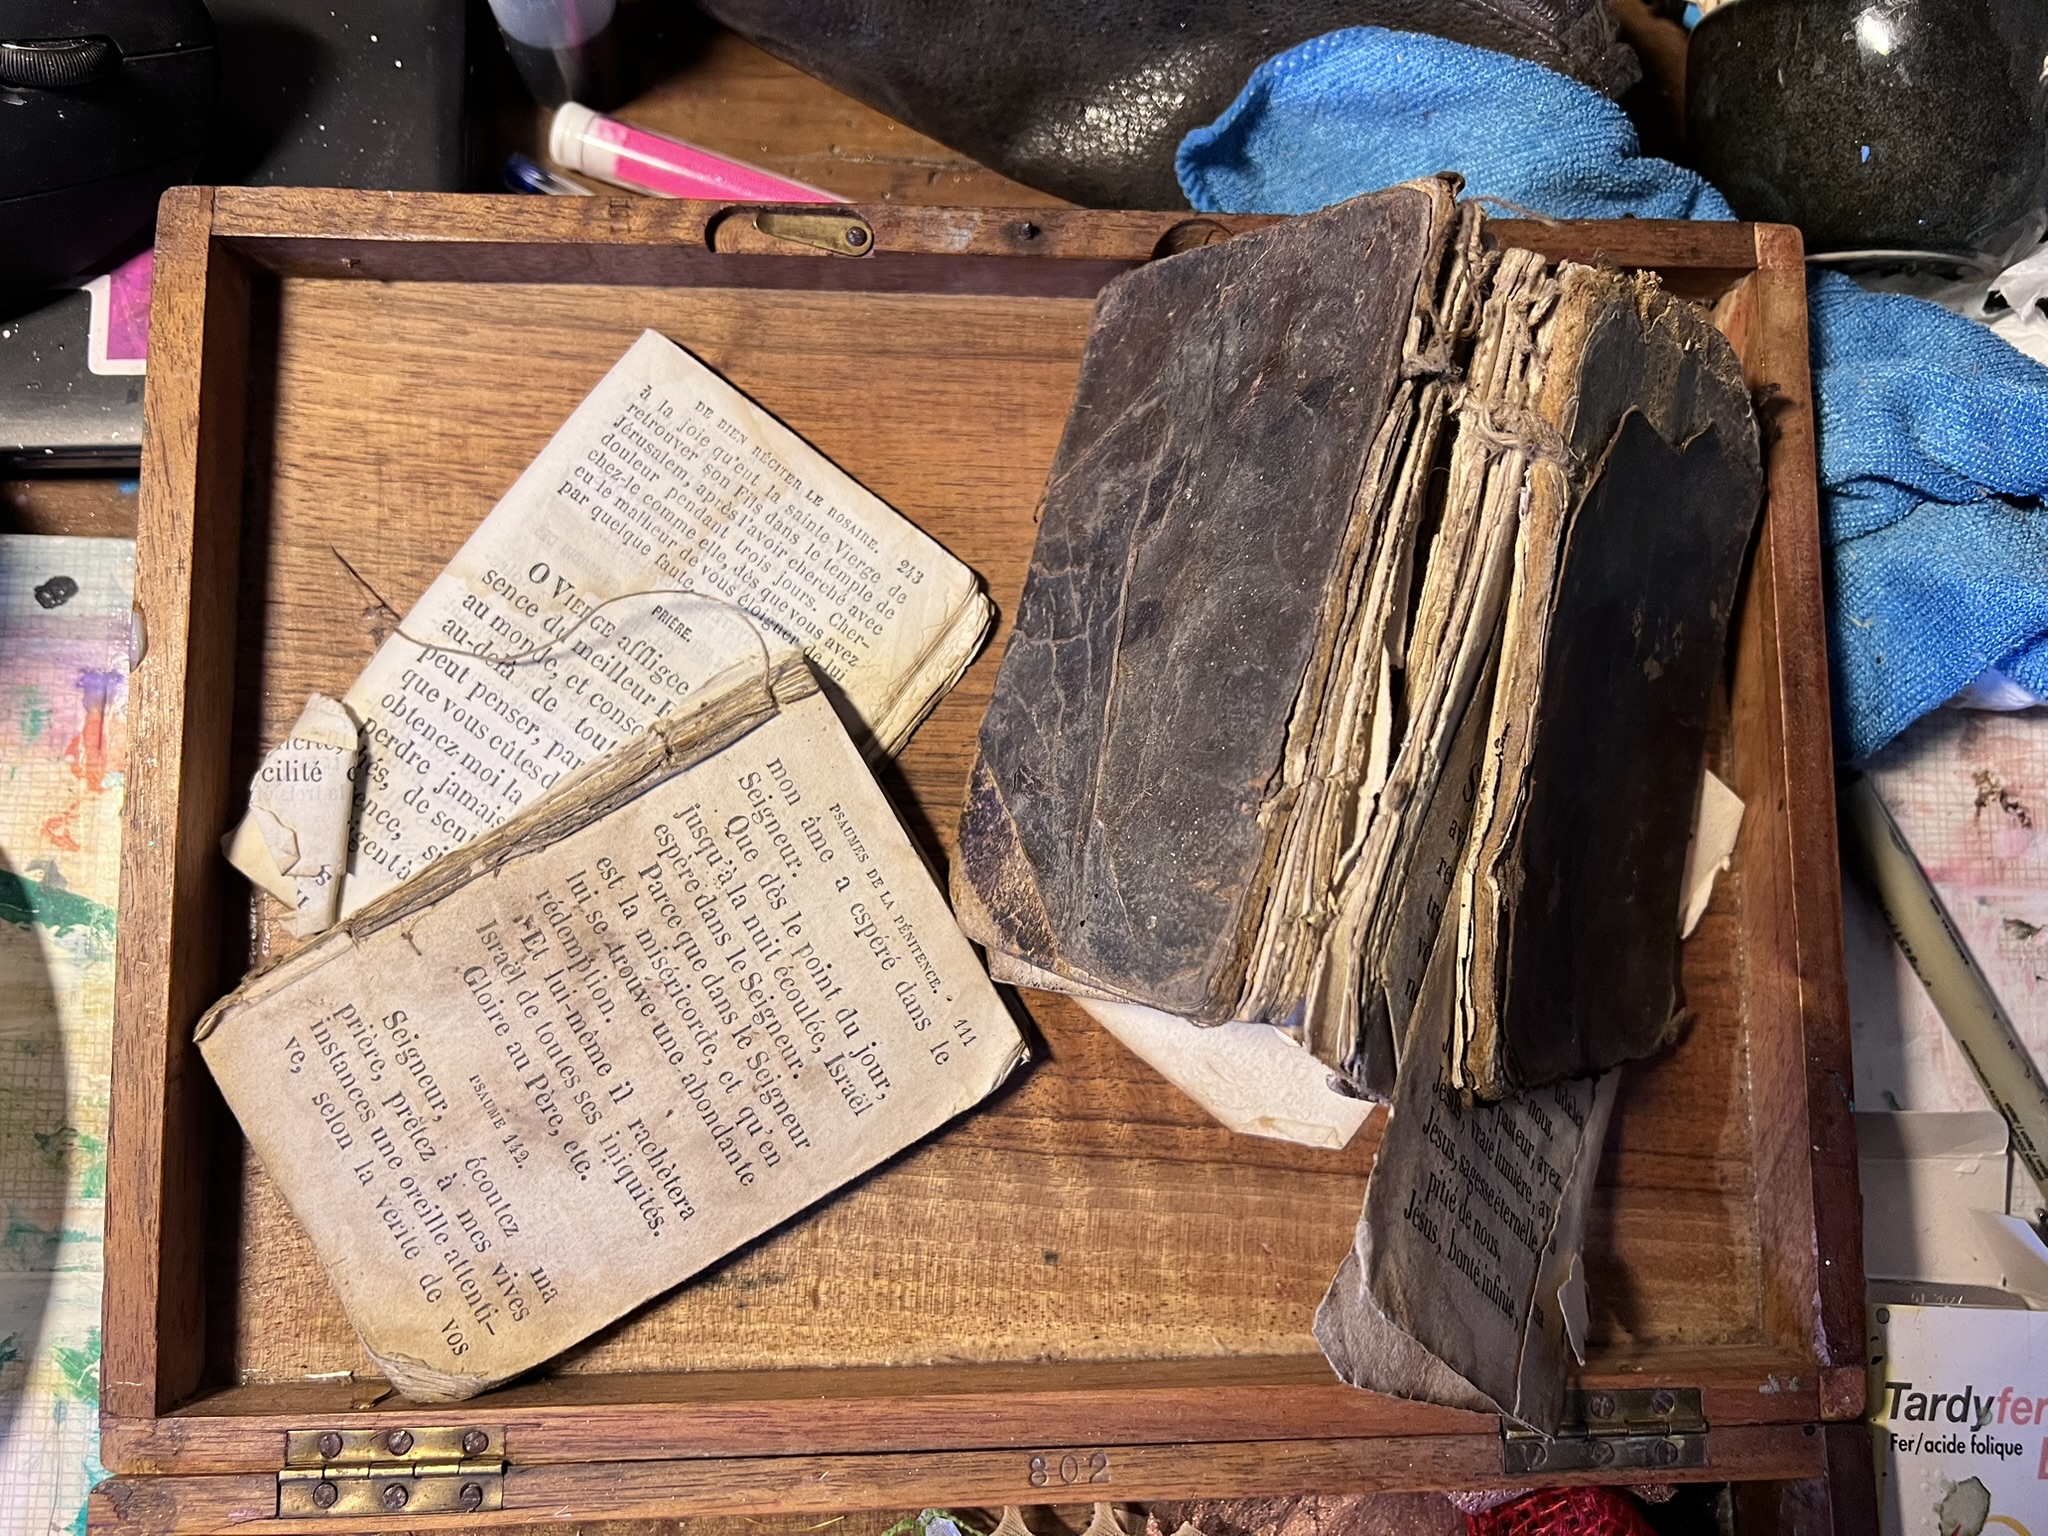 DE BIEN RÉCITER LE ROSAIRE. 243
à la joie qu'eut la sainte Vierge de
retrouver son Fils dans le temple de
Jérusalem, après l'avoir cherché avec
douleur pendant trois jours. Cher-
chez-le comme elle, dès que vous avez
eu le malheur de vous éloigner de lui
par quelque faute.
PRIÈRE.
O VIERGE affligée
sence du meilleur
au monde, et conso
au-delà de tout
peut penser, par
que vous eûtes d
obtenez-moi la
perdre jamais
de sen
cilité
PSAUMES DE LA PÉNITENCE. 111
mon âme a espéré dans le
Seigneur.
Que dès le point du jour,
jusqu'à la nuit écoulée, Israël
espère dans le Seigneur.
Parce que dans le Seigneur
est la miséricorde, et qu'en
lui se trouve une abondante
rédemption.
Et lui-même il rachètera
Israël de toutes ses iniquités.
Gloire au Père, etc.
PSAUME 142.
Seigneur, écoutez ma
prière, prêtez à mes vives
instances une oreille attenti-
ve, selon la vérité de vos
nous.
pasteur, ayez
Jésus, vraie lumière, ay
Jésus, sagesse éternelle, ay
pitié de nous.
Jésus, bonté infinie,
802
Tardyfer
Fer/acide folique